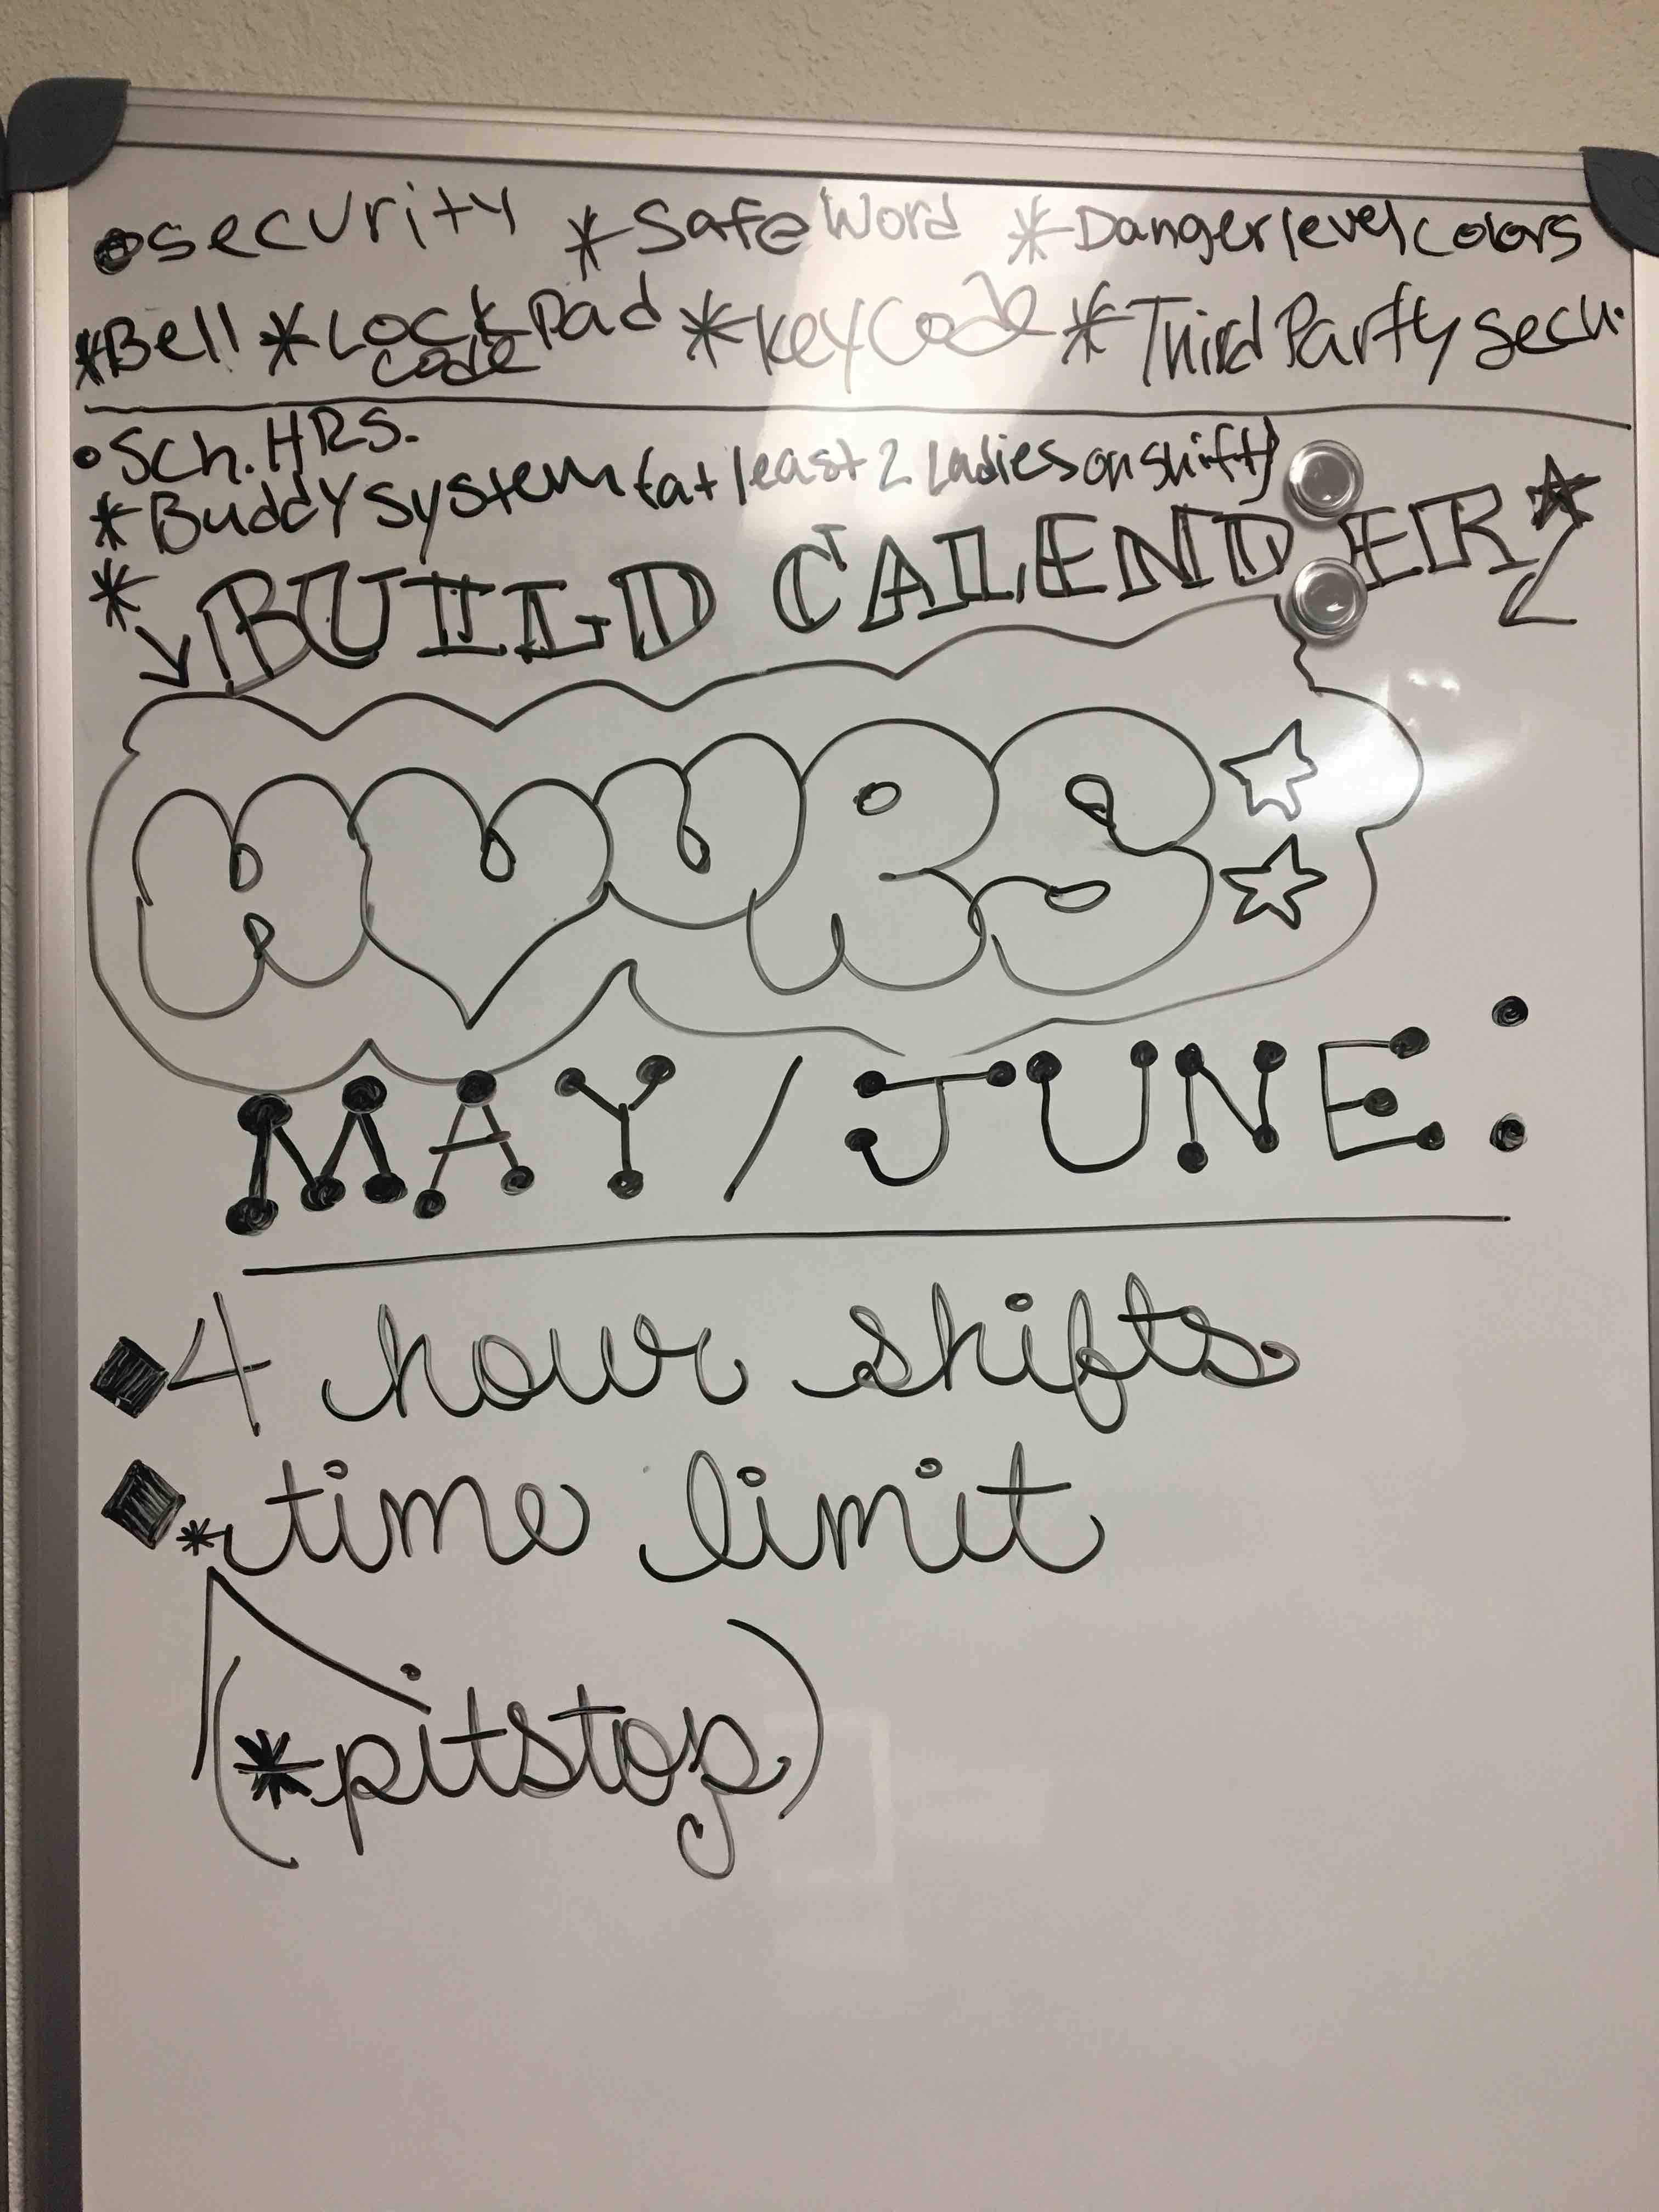 • security * Safe Word * Danger level colors
* Bell * Lock Pad * Key Code * Third Party Secu.
code
• Sch. HRS.
* Buddy system (at least 2 Ladies on shift)
* BUILD CALENDER
H♡URS
MAY / JUNE:
4 hour shifts
* time limit
(* pitstop)